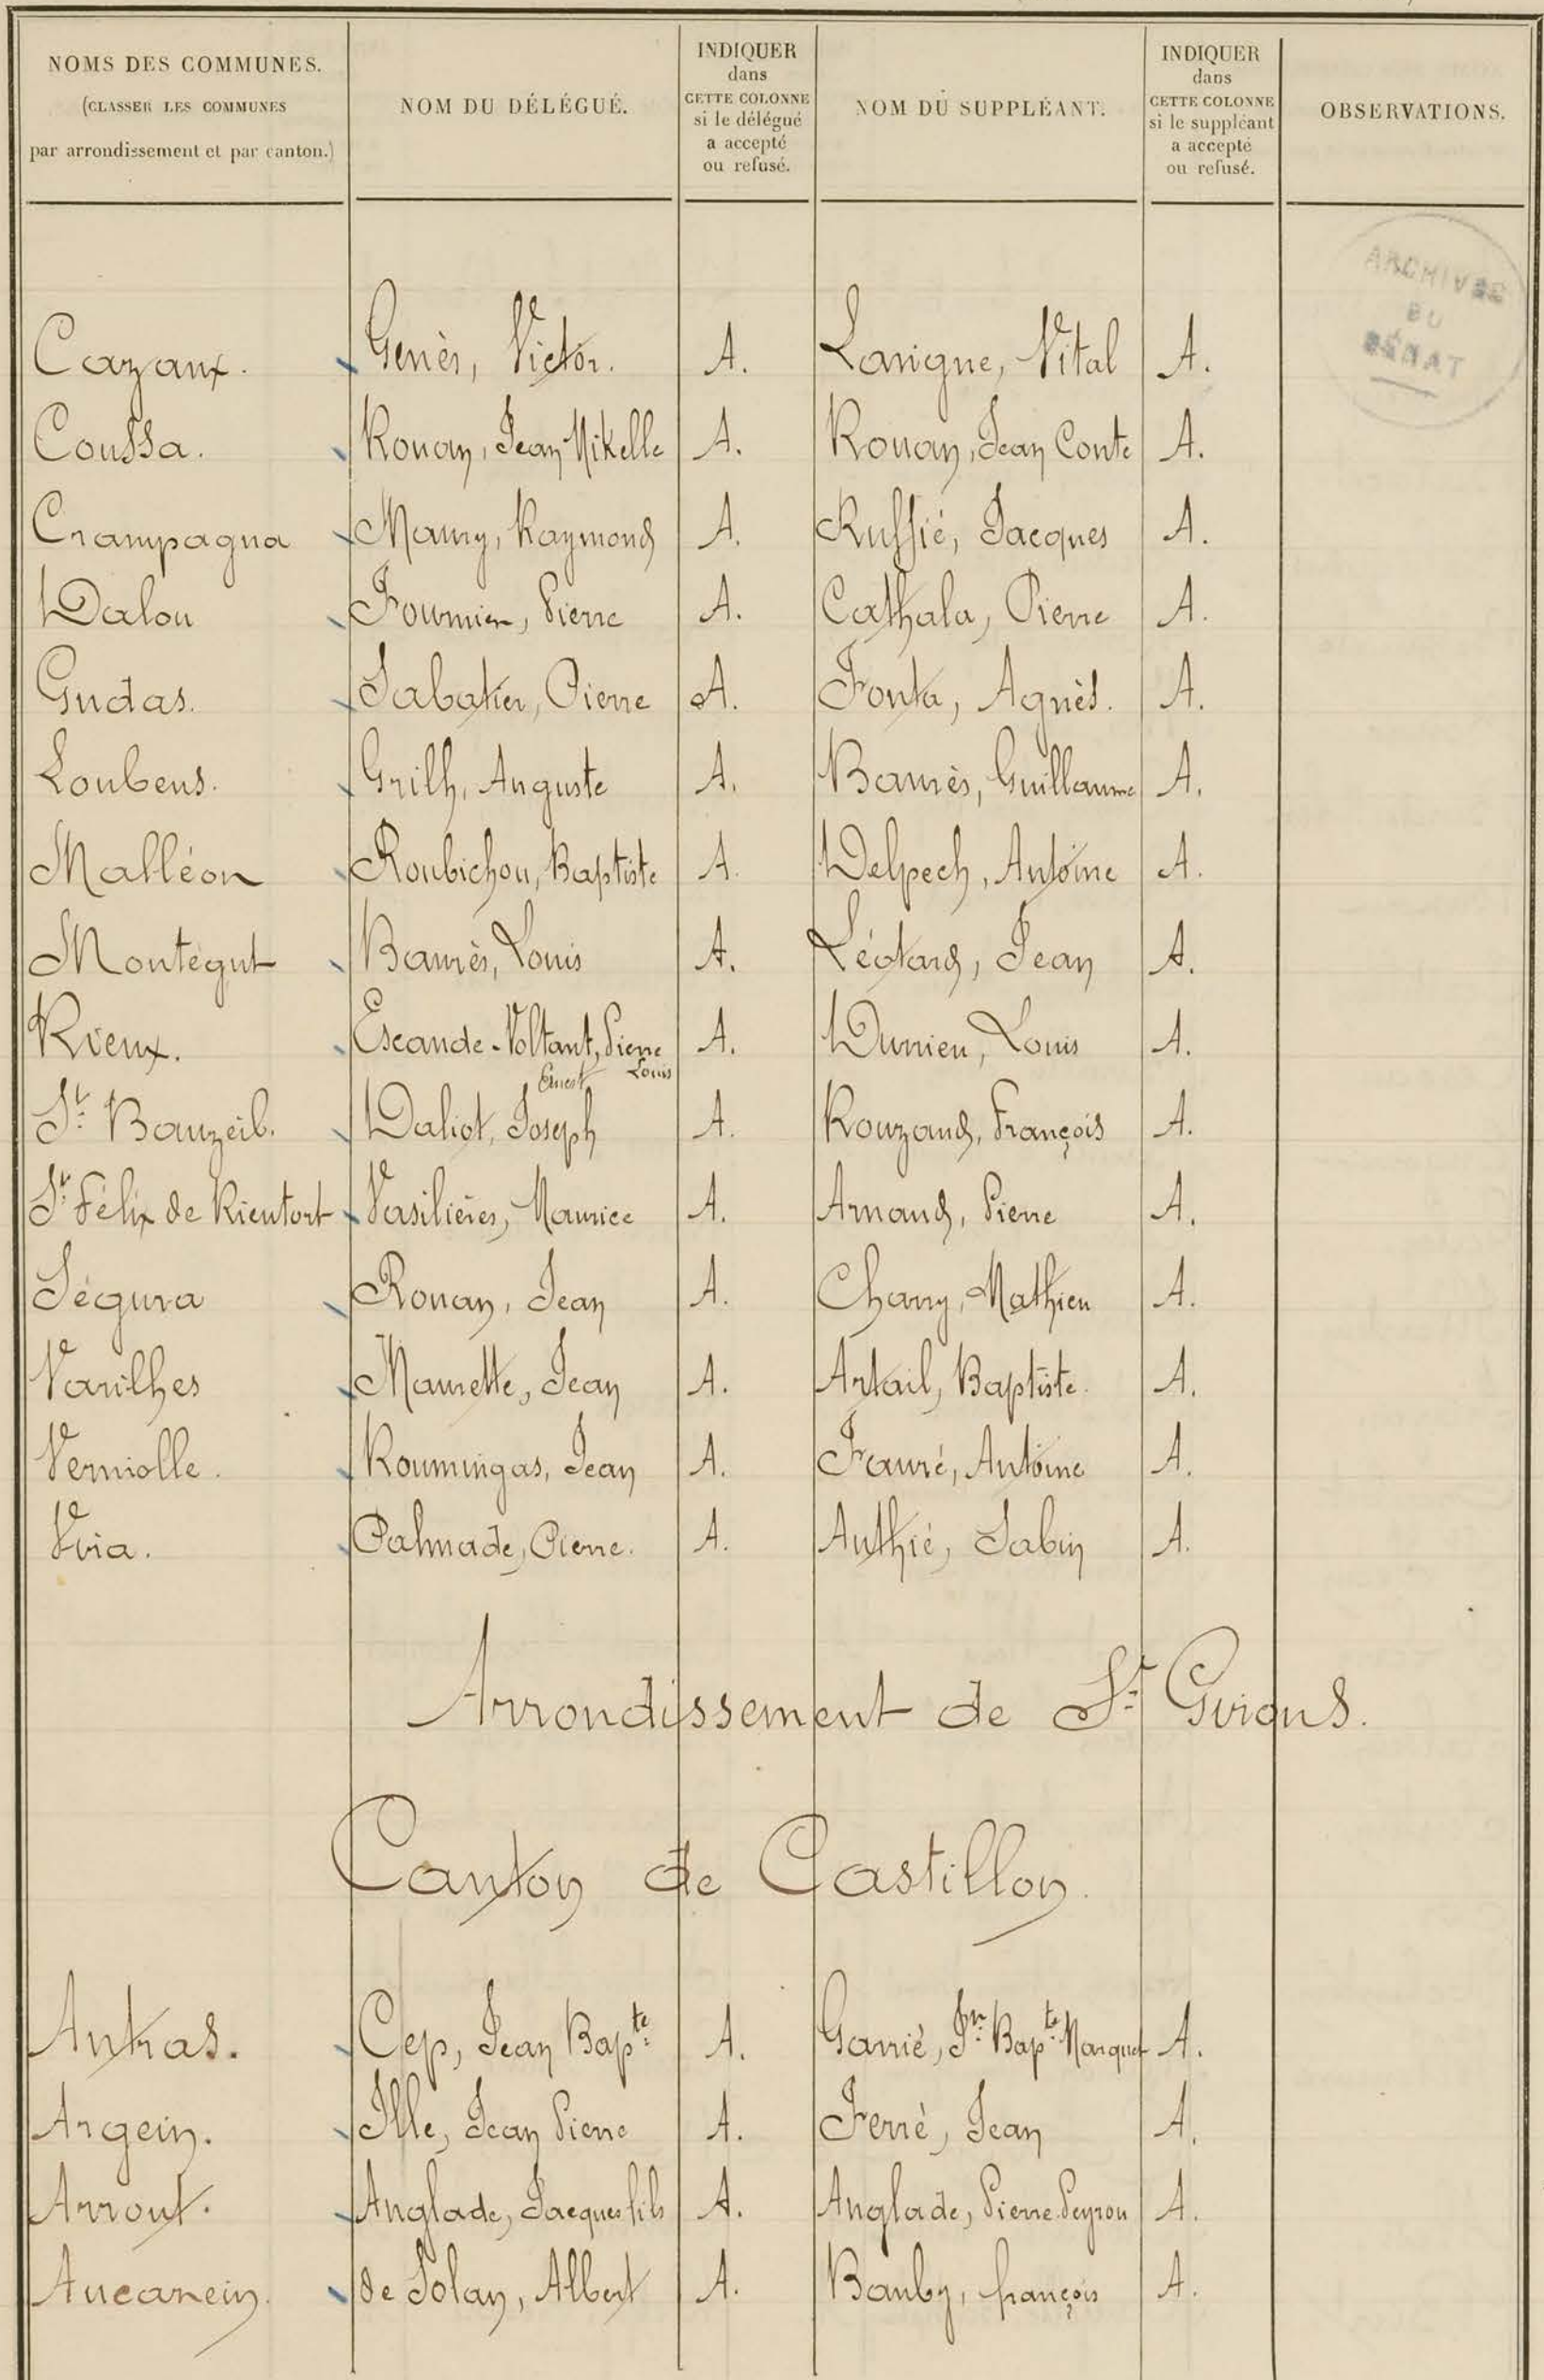 NOMS DES COMMUNES. (CLASSER LES COMMUNES par arrondissement et par canton.) | NOM DU DÉLÉGUÉ. | INDIQUER dans CETTE COLONNE si le délégué a accepté ou refusé. | NOM DU SUPPLÉANT. | INDIQUER dans CETTE COLONNE si le suppléant a accepté ou refusé. | OBSERVATIONS.
Cazaux. Geniès, Victor. A. Lavigne, Vital A.
Coussa. Rouan, Jean Mikelle A. Rouan, Jean Conte A.
Crampagna Maury, Raymond A. Ruffié, Jacques A.
Dalou Fournier, Pierre A. Cathala, Pierre A.
Gudas. Sabatier, Pierre A. Fonta, Agnès. A.
Loubens. Grilh, Auguste A. Baurès, Guillaume A.
Malléon Roubichou, Baptiste A. Delpech, Antoine A.
Montégut Baurès, Louis A. Léotard, Jean A.
Rieux. Escande-Voltant, Pierre Louis A. Durrieu, Louis A.
St Bauzeil. Daliot, Joseph Ernest A. Rouzaud, François A.
St Félix de Rieutort Vasilières, Maurice A. Arnaud, Pierre A.
Ségura Rouan, Jean A. Charry, Mathieu A.
Varilhes Maurette, Jean A. Artail, Baptiste. A.
Verniolle. Roumingas, Jean A. Fauré, Antoine A.
Vira. Palmade, Pierre. A. Authié, Sabin A.
Arrondissement de St Girons.
Canton de Castillon.
Antras. Cep, Jean Bapte A. Garrié, Jn Bapte Marquet A.
Argein. Ille, Jean Pierre A. Ferré, Jean A.
Arrout. Anglade, Jacques fils A. Anglade, Pierre Peyrou A.
Aucazein. de Solan, Albert A. Bauby, françois A.